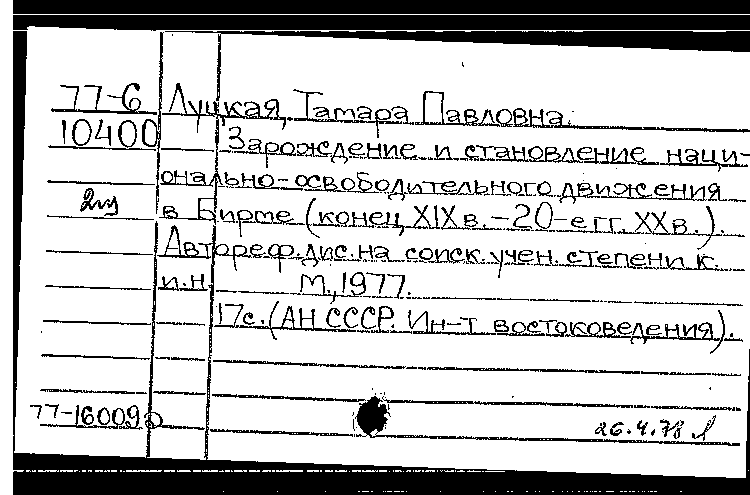 77-6 Луцкая, Тамара Павловна.
10400 Зарождение и становление наци-
онально-освободительного движения
в Бирме (конец XIX в. – 20-е гг. XX в.).
Автореф. дис. на соиск. учен. степени к.
и. н. М., 1977.
17с. (АН СССР. Ин-т востоковедения).
77-16009
26.4.78